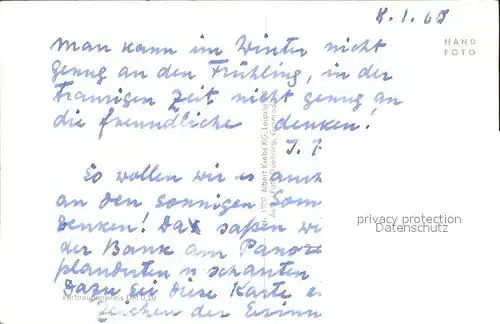 8.1.68
HAND
FOTO
Man kann im Winter nicht
genug an den Frühling, in der
traurigen Zeit nicht genug an
die freundliche denken!
J. P.
So wollen wir es auch
an den sonnigen Som
denken! Da saßen wi
der Bank am Panora
plauderten u. schauten
Dazu sei diese Karte e
Zeichen der Erinn
Verbraucherpreis DM 0,20
Albert Krebs KG, Leipzig
privacy protection
Datenschutz